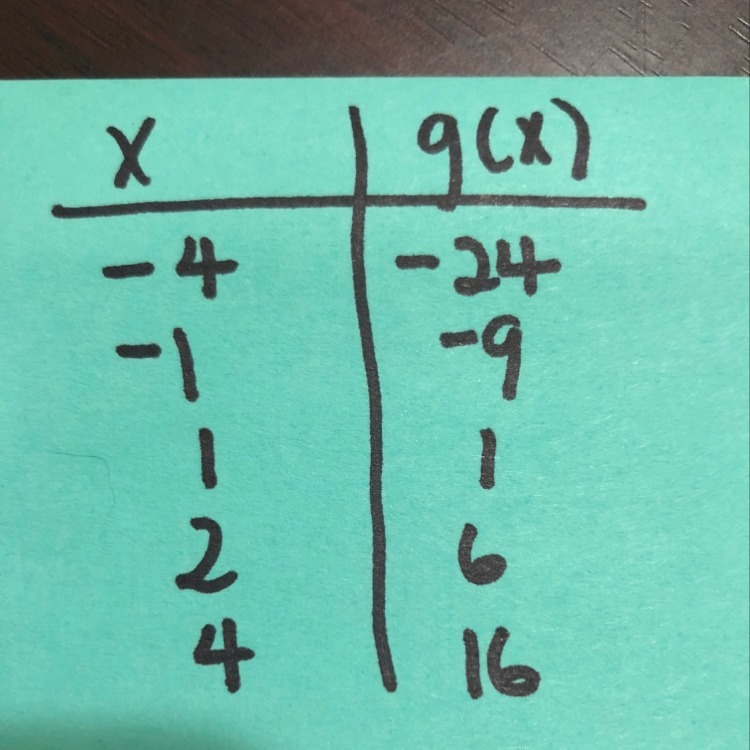 x g(x)
-4 -24
-1 -9
1 1
2 6
4 16